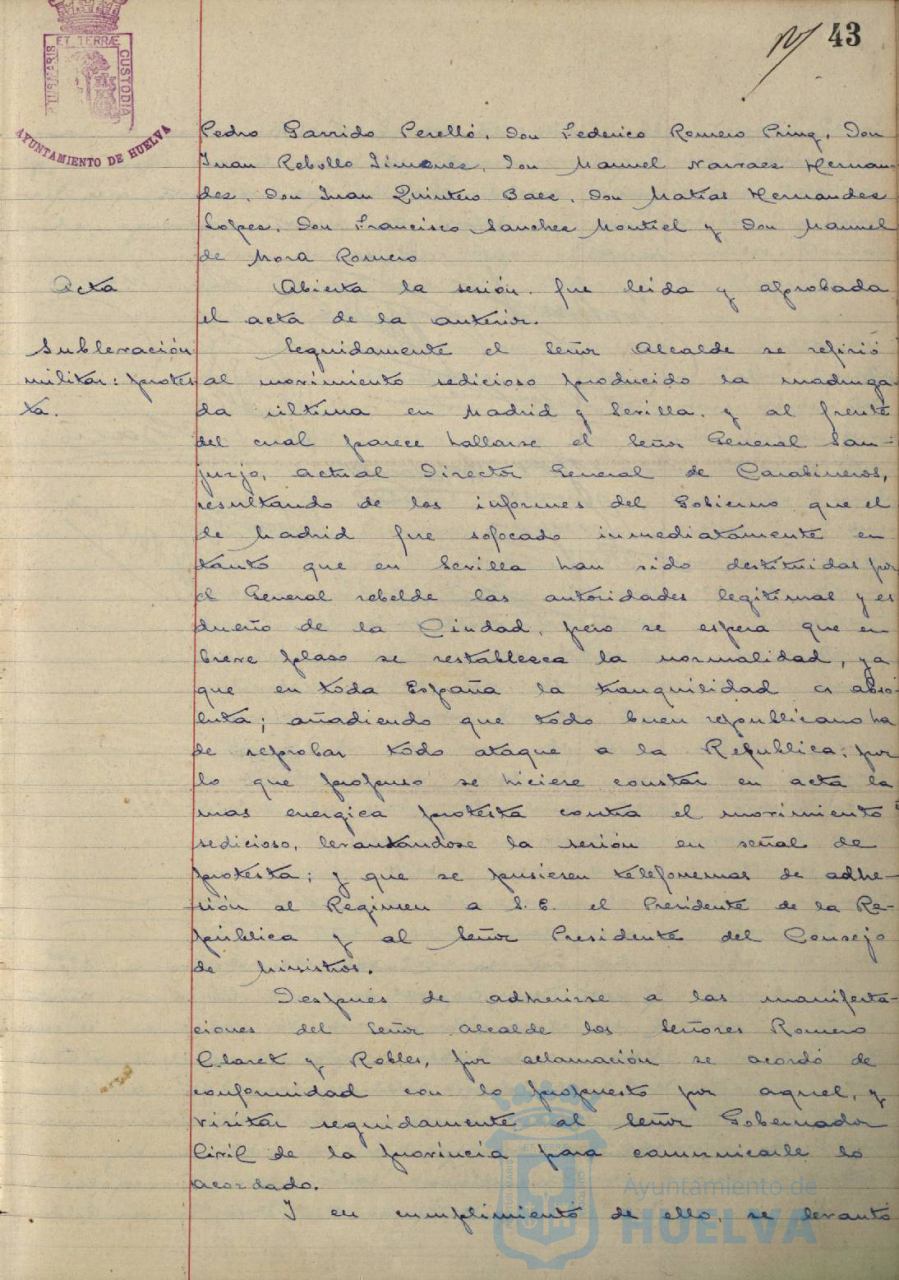 43
PORTUS MARIS
ET TERRÆ
CUSTODIA
AYUNTAMIENTO DE HUELVA
Pedro Garrido Perelló, Don Federico Romero Pring, Don
Juan Rebollo Jimenez, Don Manuel Narvaez Hernan-
dez, Don Juan Quintero Baez, Don Matías Hernandez
Lopez, Don Francisco Sanchez Montiel y Don Manuel
de Mora Romero
Acta
Abierta la sesión fue leída y aprobada
el acta de la anterior.
Sublevación
militar: protes
ta.
Seguidamente el Señor Alcalde se refirió
al movimiento sedicioso producido la madruga-
da última en Madrid y Sevilla, y al frente
del cual parece hallarse el Señor General San-
jurjo, actual Director General de Carabineros,
resultando de los informes del Gobierno que el
de Madrid fue sofocado inmediatamente en
tanto que en Sevilla han sido destituidas por
el General rebelde las autoridades legitimas y es
dueño de la Ciudad, pero se espera que en
breve plaso se restablezca la normalidad, ya
que en toda España la tranquilidad es abso-
luta; añadiendo que todo buen republicano ha
de reprobar todo ataque a la Republica; por
lo que propuso se hiciere constar en acta la
mas energica protesta contra el movimiento
sedicioso, levantándose la sesión en señal de
protesta; y que se pusieren telefonemas de adhe-
sión al Regimen a S. E. el Presidente de la Re-
pública y al Señor Presidente del Consejo
de Ministros.
Después de adherirse a las manifesta-
ciones del Señor Alcalde los Señores Romero
Claret y Robles, por aclamación se acordó de
conformidad con lo propuesto por aquel, y
visitar seguidamente al Señor Gobernador
Civil de la provincia para comunicarle lo
acordado.
Y en cumplimiento de ello, se levantó
Ayuntamiento de
HUELVA